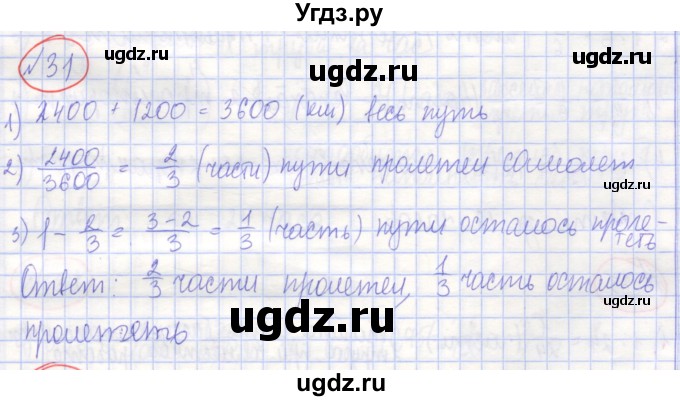 Угдз.ру
ugdz.ru ugdz.ru
№31
1) 2400 + 1200 = 3600 (км) весь путь
ugdz.ru ugdz.ru
2) 2400/3600 = 2/3 (части) пути пролетел самолет
ugdz.ru ugdz.ru
3) 1 - 2/3 = 3-2/3 = 1/3 (часть) пути осталось проле-
теть
Ответ: 2/3 части пролетел, 1/3 часть осталось
ugdz.ru ugdz.ru
ugdz.ru
пролететь
ugdz.ru ugdz.ru
ugdz.ru